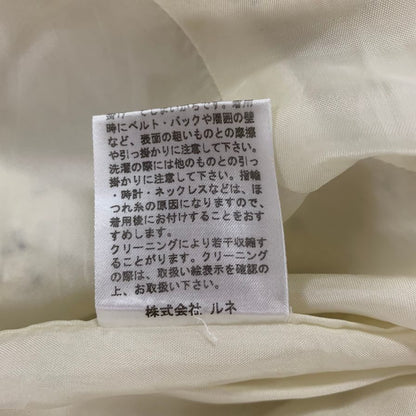 時にベルト・バックや周囲の壁
など、表面の粗いものとの摩擦
や引っ掛かりに注意して下さい。
洗濯の際には他のものとの引っ
掛かりに注意して下さい。指輪
・時計・ネックレスなどは、ほ
つれ糸の原因になりますので、
着用後にお付けすることをおす
すめします。
クリーニングにより若干収縮す
ることがります。クリーニング
の際は、取扱い絵表示を確認の
上、お取扱い下さい。
株式会社 ルネ